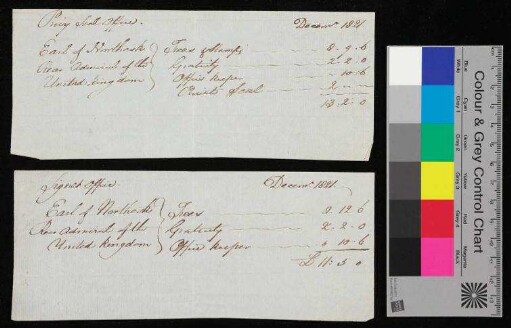 Privy Seal Office. Decemr. 1821
Earl of Northesk Fees & Stamps 8 . 9 . 6
Rear Admiral of the Gratuity 2 . 2 . 0
United Kingdom Office keeper 10 . 6
Private Seal 2
13 . 2 . 0
Signet Office Decemr. 1821.
Earl of Northesk Fees 8 . 12 . 6
Rear Admiral of the Gratuity 2 . 2 . 0
United Kingdom Office keeper 10 . 6
£11 . 5 . 0
Colour & Grey Control Chart
Blue
Cyan
Green
Yellow
Red
Magenta
White
Grey 1
Grey 2
Grey 3
Grey 4
Black